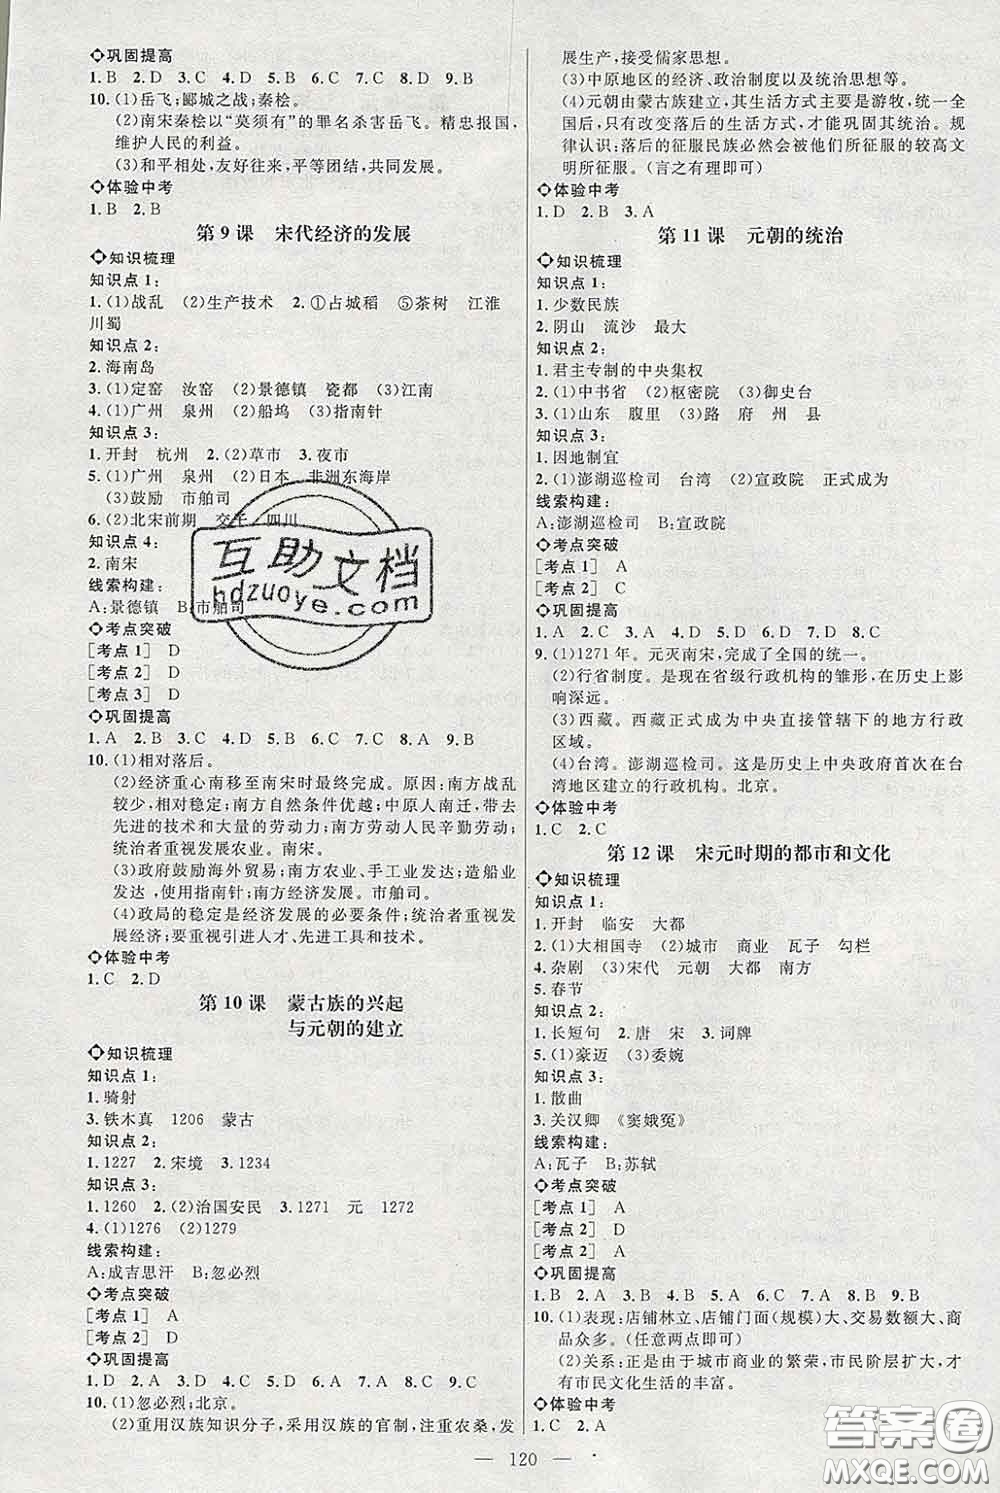 巩固提高
1.B 2.D 3.C 4.D 5.B 6.C 7.C 8.D 9.B
10.(1)岳飞;郾城之战;秦桧。
(2)南宋秦桧以“莫须有”的罪名杀害岳飞。精忠报国,
维护人民的利益。
(3)和平相处,友好往来,平等团结,共同发展。
体验中考
1.B 2.B
第 9 课 宋代经济的发展
知识梳理
知识点 1:
1.(1)战乱 (2)生产技术 2.①占城稻 ⑤茶树 江淮
川蜀
知识点 2:
2.海南岛
3.(1)定窑 汝窑 (2)景德镇 瓷都 (3)江南
4.(1)广州 泉州 (2)船坞 (3)指南针
知识点 3:
1.开封 杭州 2.(2)草市 3.夜市
5.(1)广州 泉州 (2)日本 非洲东海岸
(3)鼓励 市舶司
6.(2)北宋前期 交子 四川
知识点 4:
2.南宋
线索构建:
A:景德镇 B:市舶司
考点突破
[考点 1] D
[考点 2] D
[考点 3] D
巩固提高
1.A 2.B 3.C 4.D 5.C 6.C 7.C 8.A 9.B
10.(1)相对落后。
(2)经济重心南移至南宋时最终完成。原因:南方战乱
较少,相对稳定;南方自然条件优越;中原人南迁,带去
先进的技术和大量的劳动力;南方劳动人民辛勤劳动;
统治者重视发展农业。南宋。
(3)政府鼓励海外贸易;南方农业、手工业发达;造船业
发达,使用指南针;南方经济发展。市舶司。
(4)政局的稳定是经济发展的必要条件;统治者重视发
展经济;要重视引进人才、先进工具和技术。
体验中考
1.C 2.D
第 10 课 蒙古族的兴起
与元朝的建立
知识梳理
知识点 1:
1.骑射
3.铁木真 1206 蒙古
知识点 2:
1.1227 2.宋境 3.1234
知识点 3:
1.1260 2.(2)治国安民 3.1271 元 1272
4.(1)1276 (2)1279
线索构建:
A:成吉思汗 B:忽必烈
考点突破
[考点 1] A
[考点 2] D
巩固提高
1.D 2.A 3.C 4.D 5.A 6.D 7.C 8.C 9.C
10.(1)忽必烈;北京。
(2)重用汉族知识分子,采用汉族的官制,注重农桑,发
展生产,接受儒家思想。
(3)中原地区的经济、政治制度以及统治思想等。
(4)元朝由蒙古族建立,其生活方式主要是游牧,统一全
国后,只有改变落后的生活方式,才能巩固其统治。规
律认识:落后的征服民族必然会被他们所征服的较高文
明所征服。(言之有理即可)
体验中考
1.D 2.B 3.A
第 11 课 元朝的统治
知识梳理
知识点 1:
1.少数民族
2.阴山 流沙 最大
知识点 2:
1.君主专制的中央集权
2.(1)中书省 (2)枢密院 (3)御史台
3.(1)山东 腹里 (3)路 府 州 县
知识点 3:
1.因地制宜
2.(1)澎湖巡检司 台湾 (2)宣政院 正式成为
线索构建:
A:澎湖巡检司 B:宣政院
考点突破
[考点 1] A
[考点 2] C
巩固提高
1.A 2.C 3.C 4.A 5.A 6.D 7.D 8.C
9.(1)1271年。元灭南宋,完成了全国的统一。
(2)行省制度。是现在省级行政机构的雏形,在历史上影
响深远。
(3)西藏。西藏正式成为中央直接管辖下的地方行政
区域。
(4)台湾。澎湖巡检司。这是历史上中央政府首次在台
湾地区建立的行政机构。北京。
体验中考
1.C 2.C
第 12 课 宋元时期的都市和文化
知识梳理
知识点 1:
1.开封 临安 大都
2.(1)大相国寺 (2)城市 商业 瓦子 勾栏
4.杂剧 (3)宋代 元朝 大都 南方
5.春节
知识点 2:
1.长短句 2.唐 宋 3.词牌
5.(1)豪迈 (3)委婉
知识点 3:
1.散曲
3.关汉卿 《窦娥冤》
线索构建:
A:瓦子 B:苏轼
考点突破
[考点 1] A
[考点 2] D
[考点 2] A
巩固提高
1.B 2.A 3.D 4.D 5.B 6.A 7.C 8.C 9.B
10.(1)表现:店铺林立、店铺门面(规模)大、交易数额大、商
品众多。(任意两点即可)
(2)关系:正是由于城市商业的繁荣,市民阶层扩大,才
有市民文化生活的丰富。
体验中考
1.C 2.A
— 120 —
互助文档
hdzuoye.com
答案圈
MXQE.COM